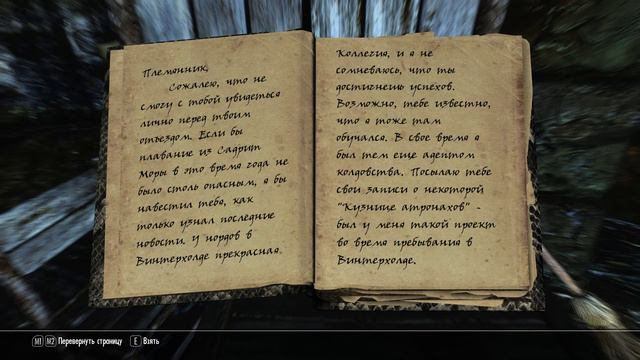 Племянник,
Сожалею, что не
смогу с тобой увидеться
лично перед твоим
отъездом. Если бы
плавание из Садрит
Моры в это время года не
было столь опасным, я бы
навестил тебя, как
только узнал последние
новости. У нордов в
Винтерхолде прекрасная
Коллегия, и я не
сомневаюсь, что ты
достигнешь успехов.
Возможно, тебе известно,
что я тоже там
обучался. В свое время я
был тем еще адептом
колдовства. Посылаю тебе
свои записи о некоторой
"Кузнице атронахов" -
был у меня такой проект
во время пребывания в
Винтерхолде.
M1 M2 Перевернуть страницу E Взять